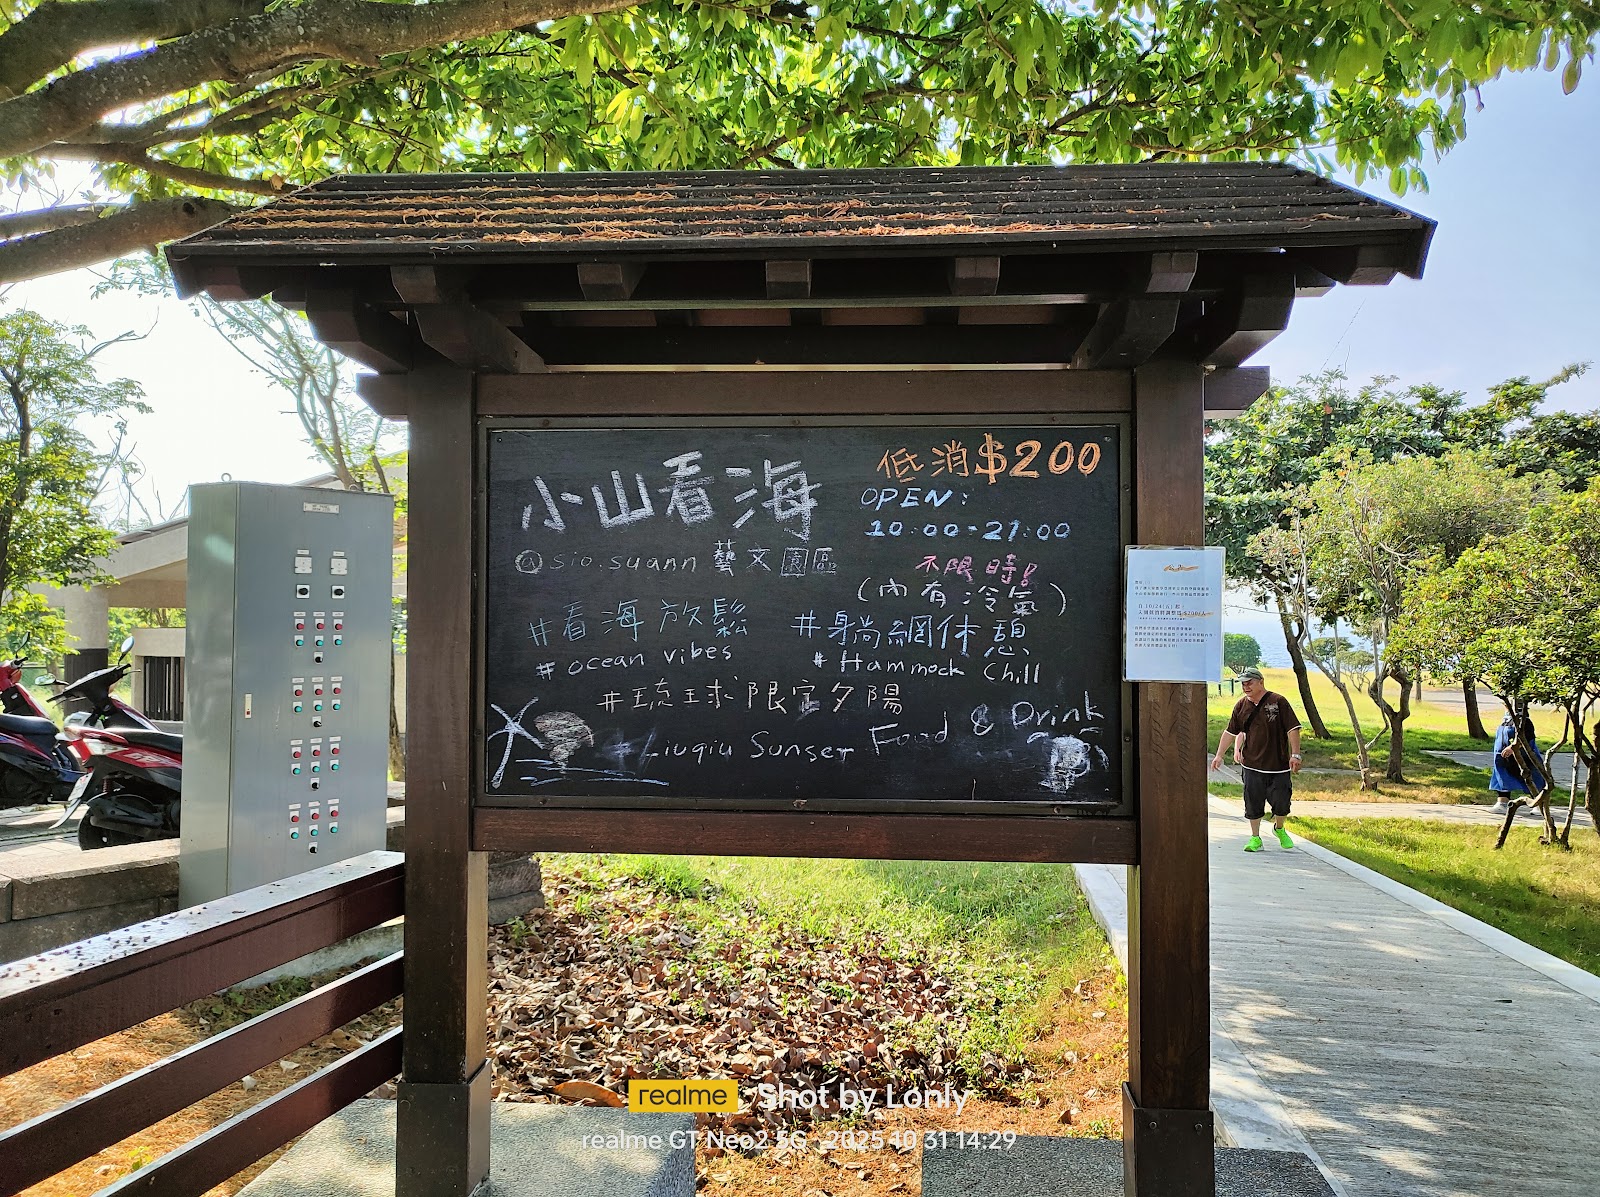 小山看海
低消$200
OPEN:
10:00-21:00
@sio.suann 藝文園區
不限時!
(內有冷氣)
#看海放鬆
#躺網休憩
#ocean vibes
#Hammock Chill
#琉球限定夕陽
#Liuqiu Sunset
Food & Drink
realme
Shot by Lonly
realme GT Neo2 5G 2025 10 31 14:29